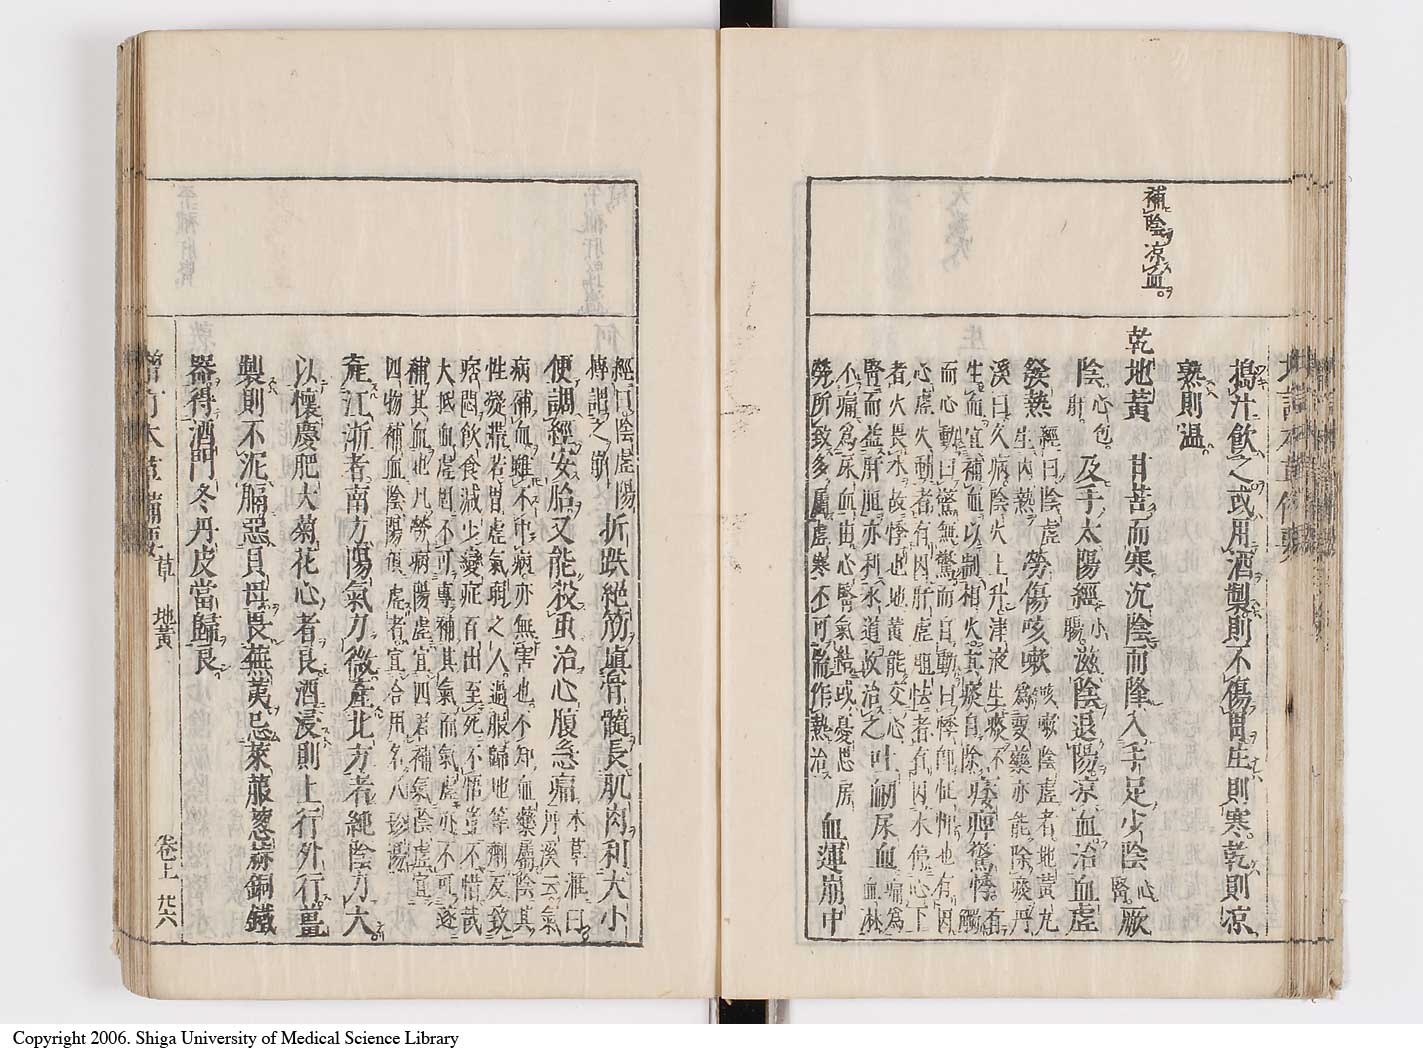 補陰凉血
搗汁飲之或用酒製則不傷胃生則寒乾則凉
熟則温
乾地黃 甘苦而寒沉陰而降入手足少陰心腎厥
陰心包肝及手太陽經小腸滋陰退陽凉血治血虛
發熱經曰陰虛生內熱勞傷咳嗽咳嗽陰虛者地黃丸為要藥亦能除痰丹
溪曰久病陰火上升津液生痰不
生血宜補血以制相火其痰自除痿痺驚悸有觸
而心動曰驚無驚而自動曰悸即怔忡也有因
心虛火動者有因肝虛胆怯者有因水停心下
者火畏水故悸也地黃能交心
腎而益肝胆亦利水道故治之吐衄尿血血淋痛為
不痛為尿血由心腎氣結或憂思房
勞所致多屬虛寒不可常作熱治血運崩中
經曰陰虛陽
搏謂之崩折跌絕筋塡骨髓長肌肉利大小
便調經安胎又能殺虫治心腹急痛本草滙曰丹溪云氣
病補血雖不中病亦無害也不知血藥屬陰其
性凝滯若胃虛氣弱之人過服歸地等劑反致
痞悶飲食減少變症百出至死不悟豈不惜哉
大抵血虛固不可專補其氣而氣虛亦不可遂
補其血也凡勞病陽虛宜四君補氣陰虛宜
四物補血陰陽俱虛者宜合用名八珍湯
產江浙者南方陽氣力微產北方者純陰力大
以懷慶肥大菊花心者良酒浸則上行外行薑
製則不泥膈惡貝母畏蕪荑忌萊菔葱蒜銅鐵
器得酒門冬丹皮當歸良
草 地黃 卷上 廿六
Copyright 2006. Shiga University of Medical Science Library